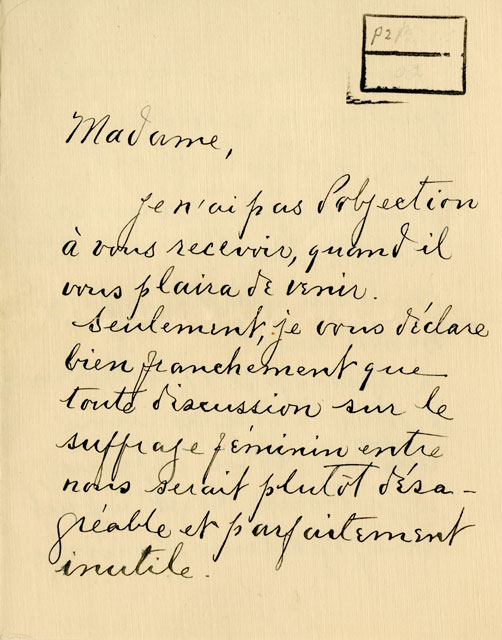 P2/
Madame,
Je n'ai pas d'objection
à vous recevoir, quand il
vous plaira de venir.
Seulement, je vous déclare
bien franchement que
toute discussion sur le
suffrage féminin entre
nous serait plutôt désa-
gréable et parfaitement
inutile.